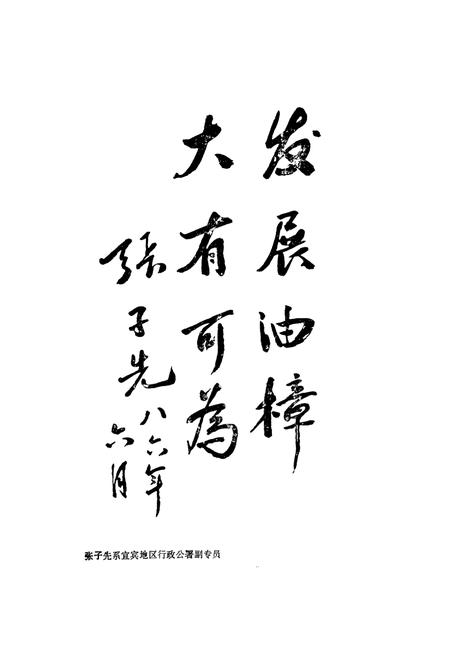 发展油樟
大有可为
张子先
八六年
六月
张子先系宜宾地区行政公署副专员